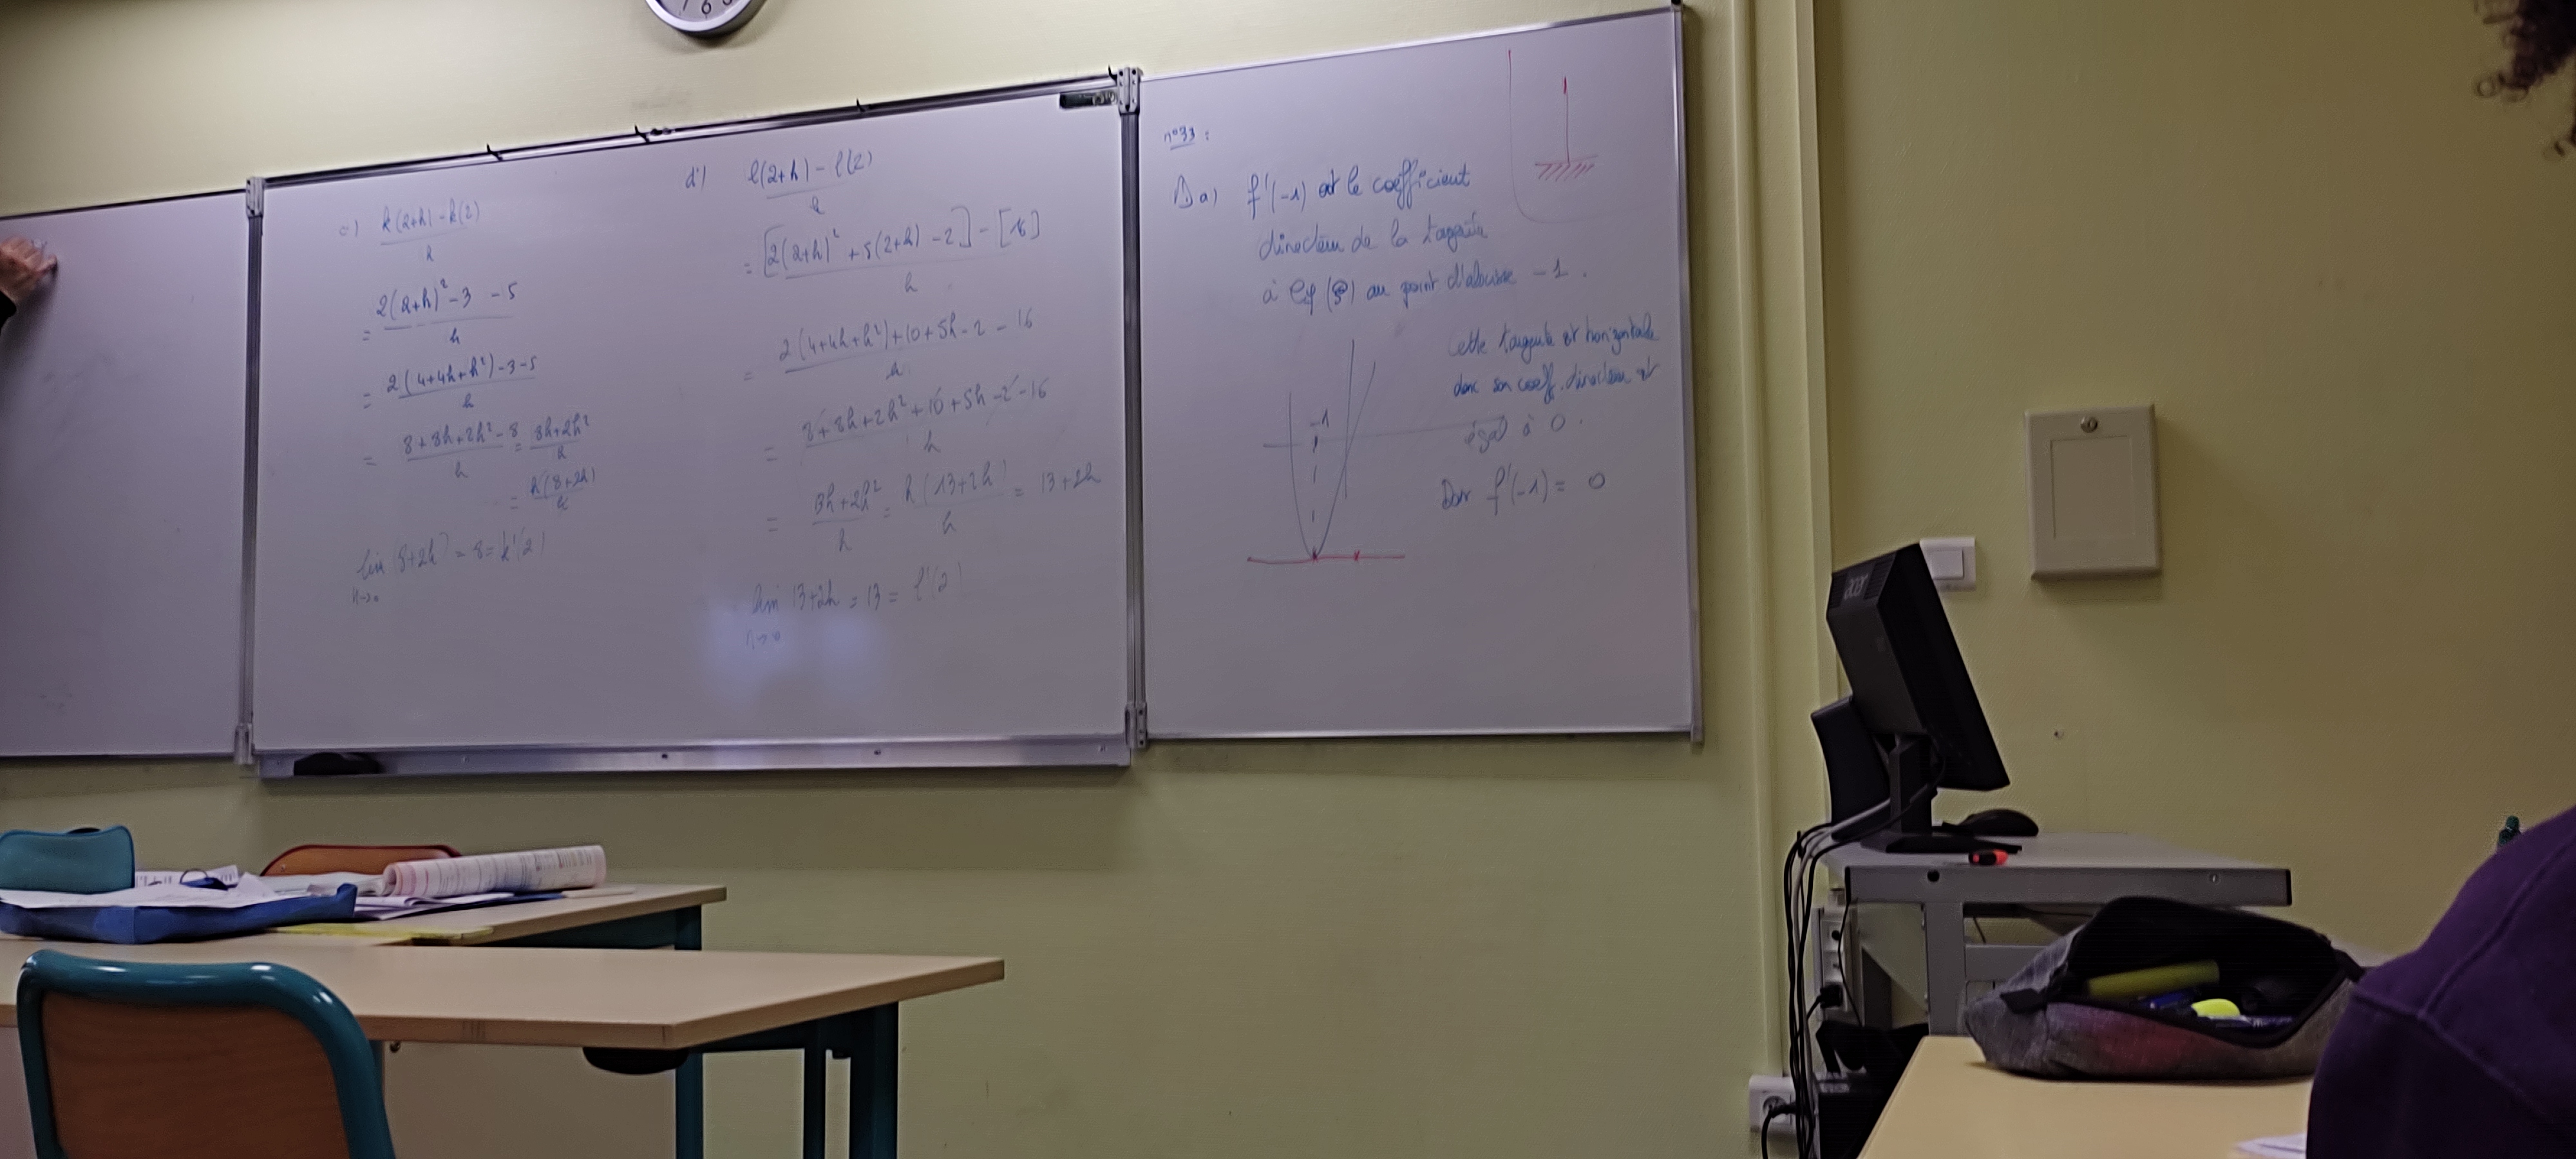 c) k(2+h) - k(2)
h
= 2(2+h)² - 3 - 5
h
= 2(4+4h+h²) - 3 - 5
h
= 8+8h+2h² - 8 = 8h+2h²
h h
= h(8+2h)
h
lim (8+2h) = 8 = k'(2)
h→0
d) l(2+h) - l(2)
h
= [2(2+h)² + 5(2+h) - 2] - [16]
h
= 2(4+4h+h²)+10+5h-2-16
h
= 8+8h+2h²+10+5h-2-16
h
= 13h+2h² = h(13+2h) = 13+2h
h h
lim 13+2h = 13 = l'(2)
h→0
n°33 :
1) a) f'(-1) est le coefficient
directeur de la tangente
à Cf (P) au point d'abscisse -1.
Cette tangente est horizontale
donc son coeff. directeur est
égal à 0.
Donc f'(-1) = 0
-1
acer
6